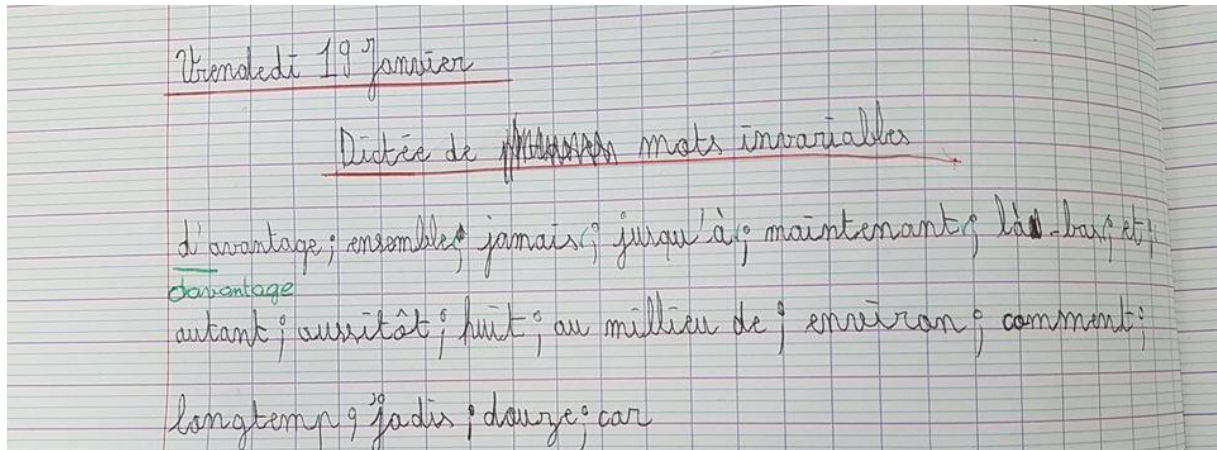 Vendredi 19 Janvier
Dictée de mots invariables
d'avantage ; ensemble ; jamais ; jusqu'à ; maintenant ; là-bas ; et ;
davantage
autant ; aussitôt ; huit ; au millieu de ; environ ; comment ;
longtemp ; jadis ; douze ; car